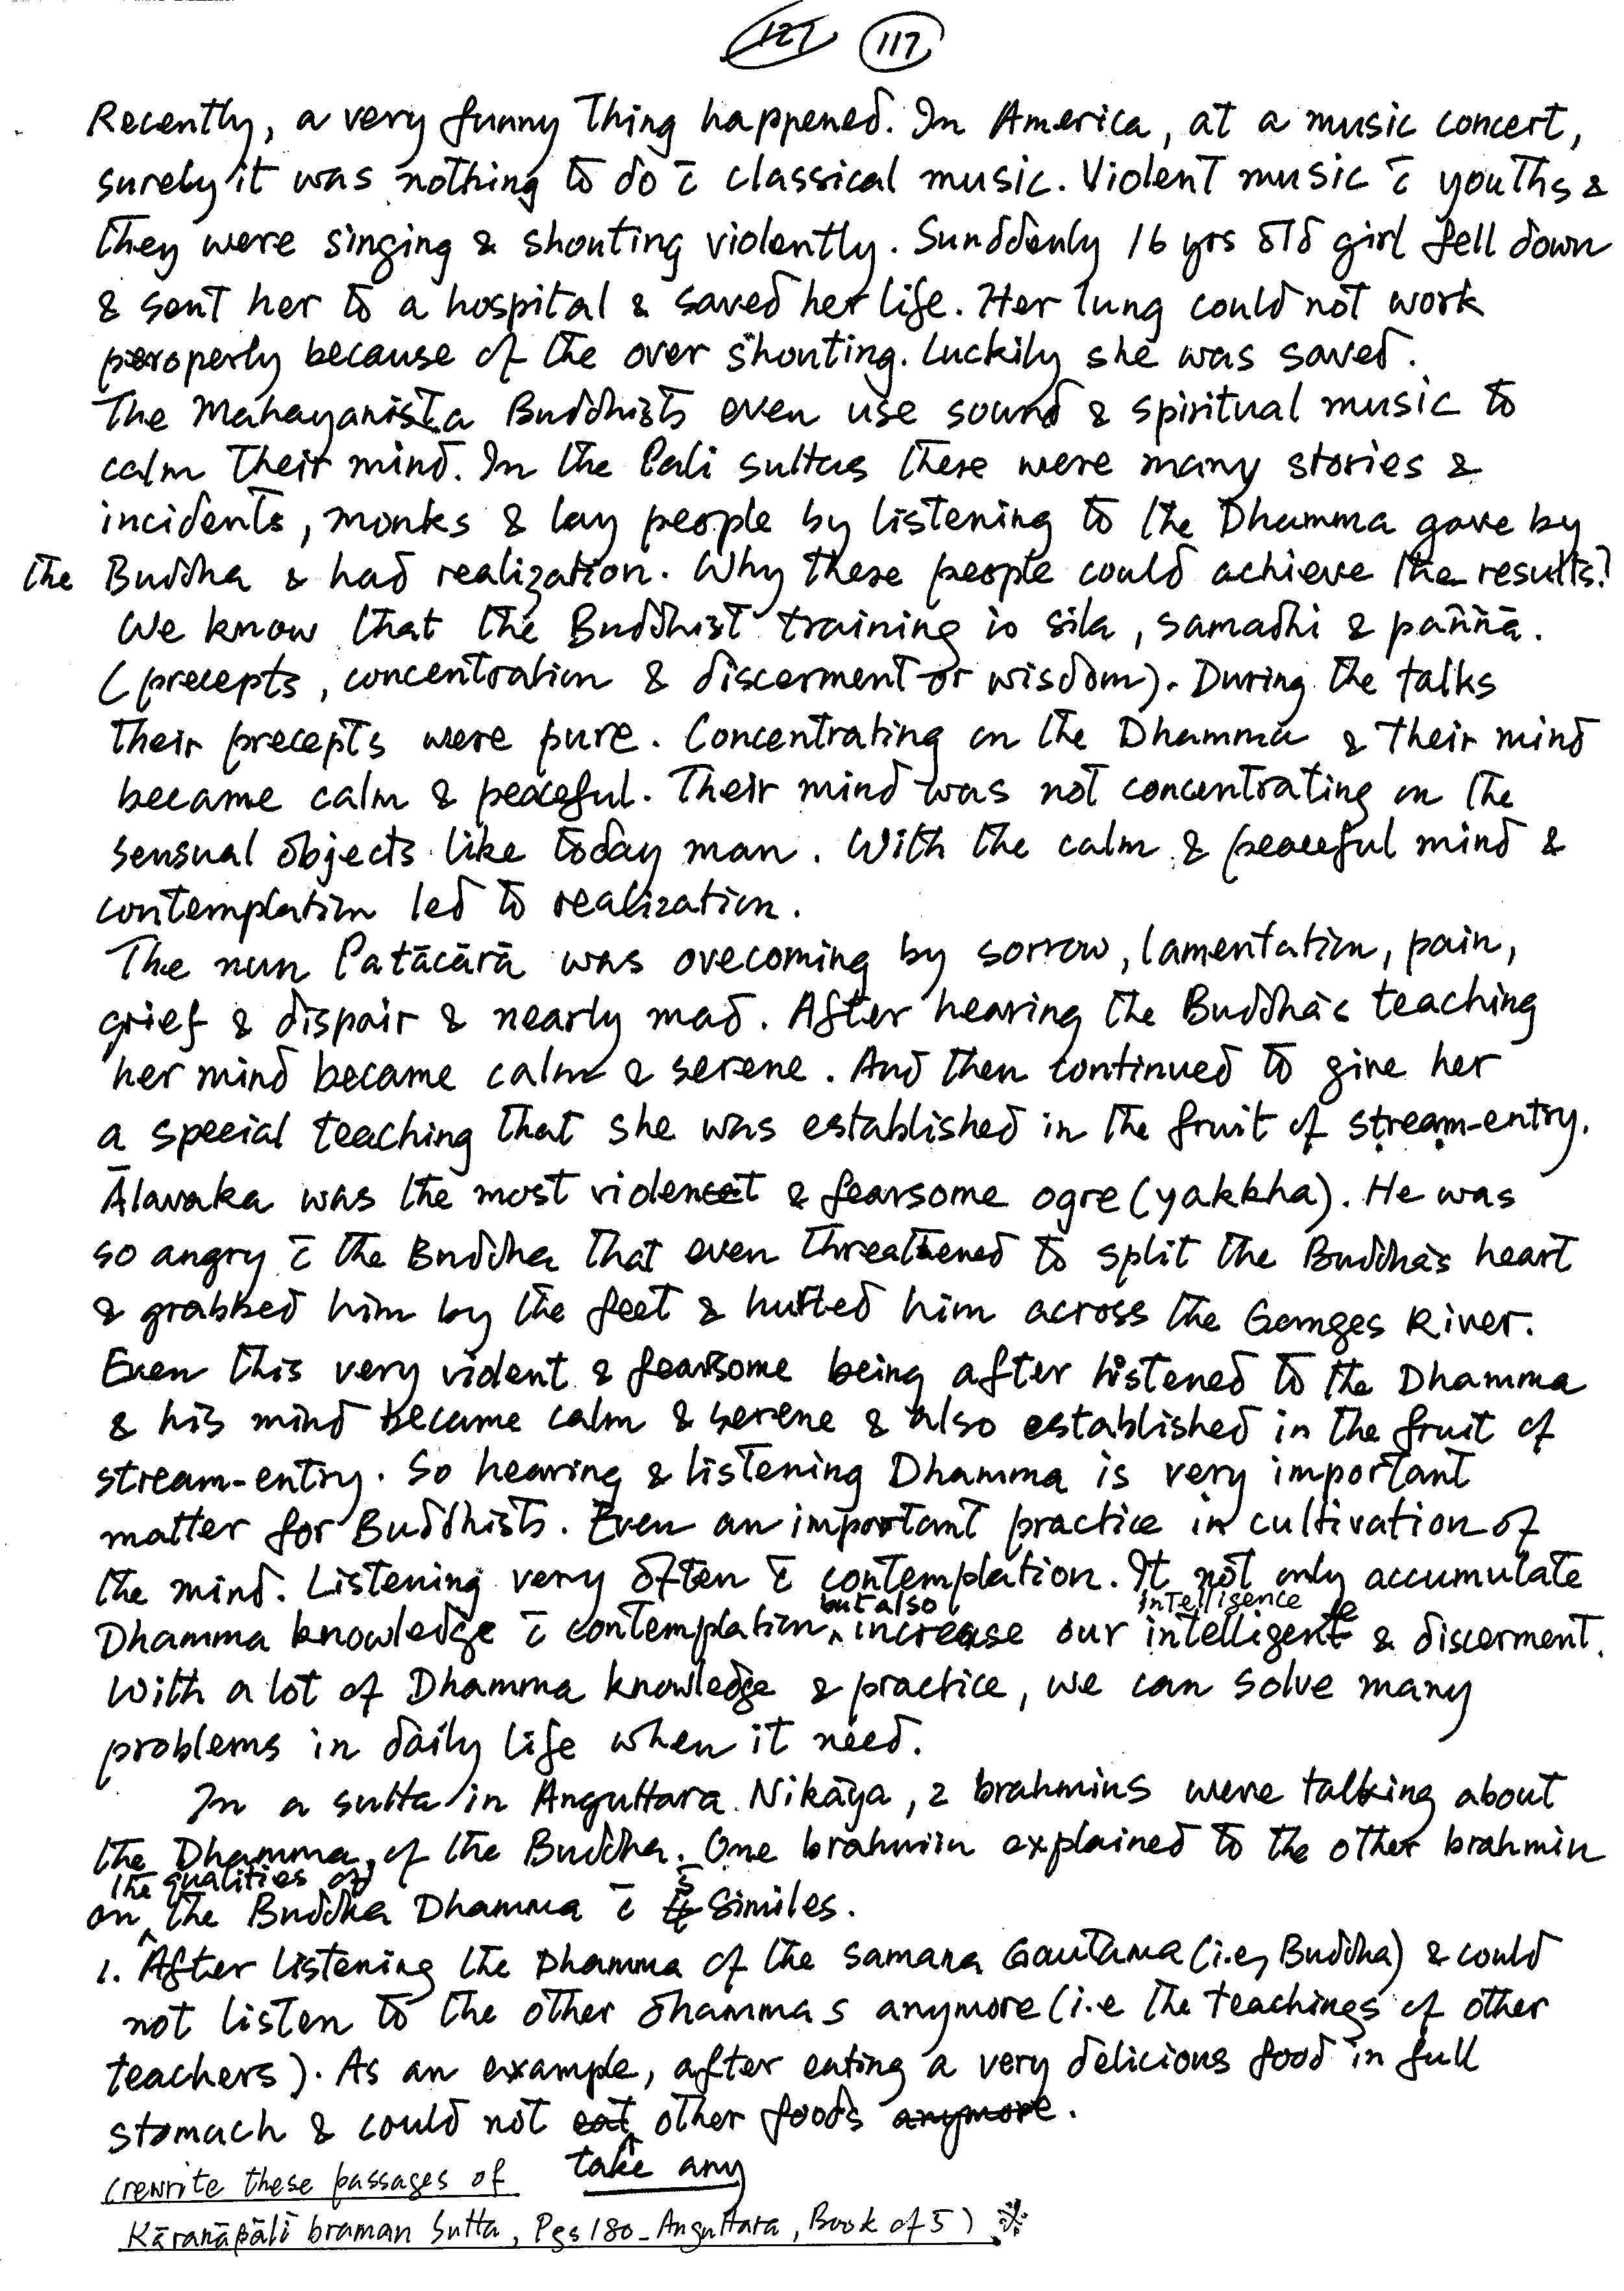 127 117
Recently, a very funny thing happened. In America, at a music concert,
surely it was nothing to do c̄ classical music. Violent music c̄ youths &
they were singing & shouting violently. Sunddenly 16 yrs old girl fell down
& sent her to a hospital & saved her life. Her lung could not work
properly because of the over shouting. Luckily she was saved.
The Mahayanista Buddhists even use sound & spiritual music to
calm their mind. In the Pali suttas there were many stories &
incidents, monks & lay people by listening to the Dhamma gave by
the Buddha & had realization. Why these people could achieve the results?
We know that the Buddhist training is sila, samadhi & paññā.
(precepts, concentration & discerment or wisdom). During the talks
their precepts were pure. Concentrating on the Dhamma & their mind
became calm & peaceful. Their mind was not concentrating on the
sensual objects like today man. With the calm & peaceful mind &
contemplation led to realization.
The nun Patācārā was ovecoming by sorrow, lamentation, pain,
grief & dispair & nearly mad. After hearing the Buddha's teaching
her mind became calm & serene. And then continued to give her
a special teaching that she was established in the fruit of stream-entry.
Ālavaka was the most violent & fearsome ogre (yakkha). He was
so angry c̄ the Buddha that even threatened to split the Buddha's heart
& grabbed him by the feet & hurled him across the Ganges River.
Even this very violent & fearsome being after listened to the Dhamma
& his mind became calm & serene & also established in the fruit of
stream-entry. So hearing & listening Dhamma is very important
matter for Buddhists. Even an important practice in cultivation of
the mind. Listening very often c̄ contemplation. It not only accumulate
but also intelligence
Dhamma knowledge c̄ contemplation, increase our intelligence & discerment.
With a lot of Dhamma knowledge & practice, we can solve many
problems in daily life when it need.
In a sutta in Anguttara Nikāya, 2 brahmins were talking about
the Dhamma of the Buddha. One brahmin explained to the other brahmin
the qualities of 5
on the Buddha Dhamma c̄ similes.
1. After listening the Dhamma of the samana Gautama (i.e, Buddha) & could
not listen to the other dhammas anymore (i.e the teachings of other
teachers). As an example, after eating a very delicious food in full
stomach & could not eat other foods anymore.
take any
(rewrite these passages of
Kāranapālī braman Sutta, Pgs 180 - Anguttara, Book of 5) ※